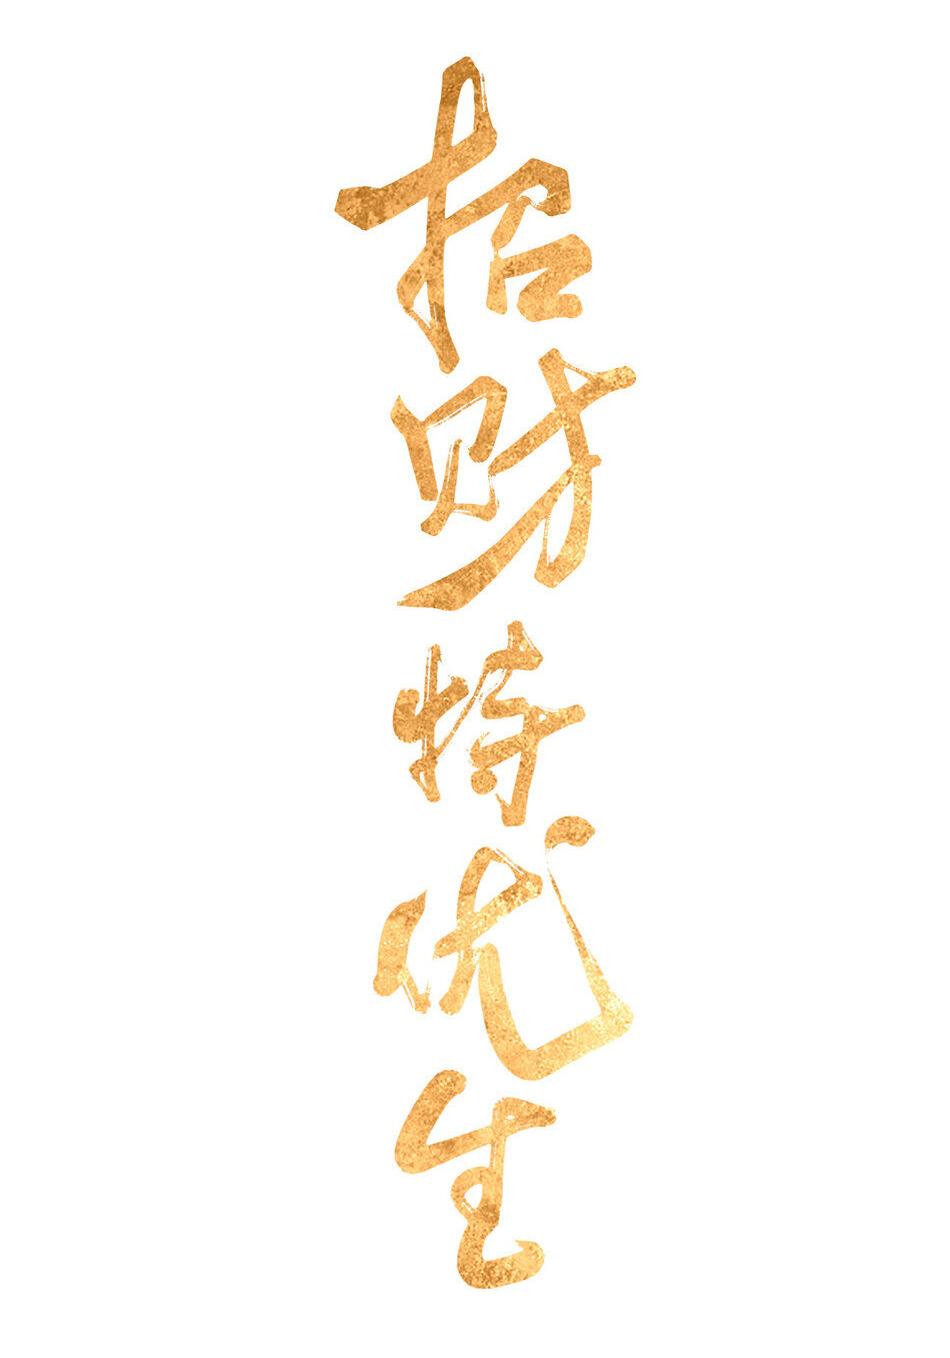 招财特优生